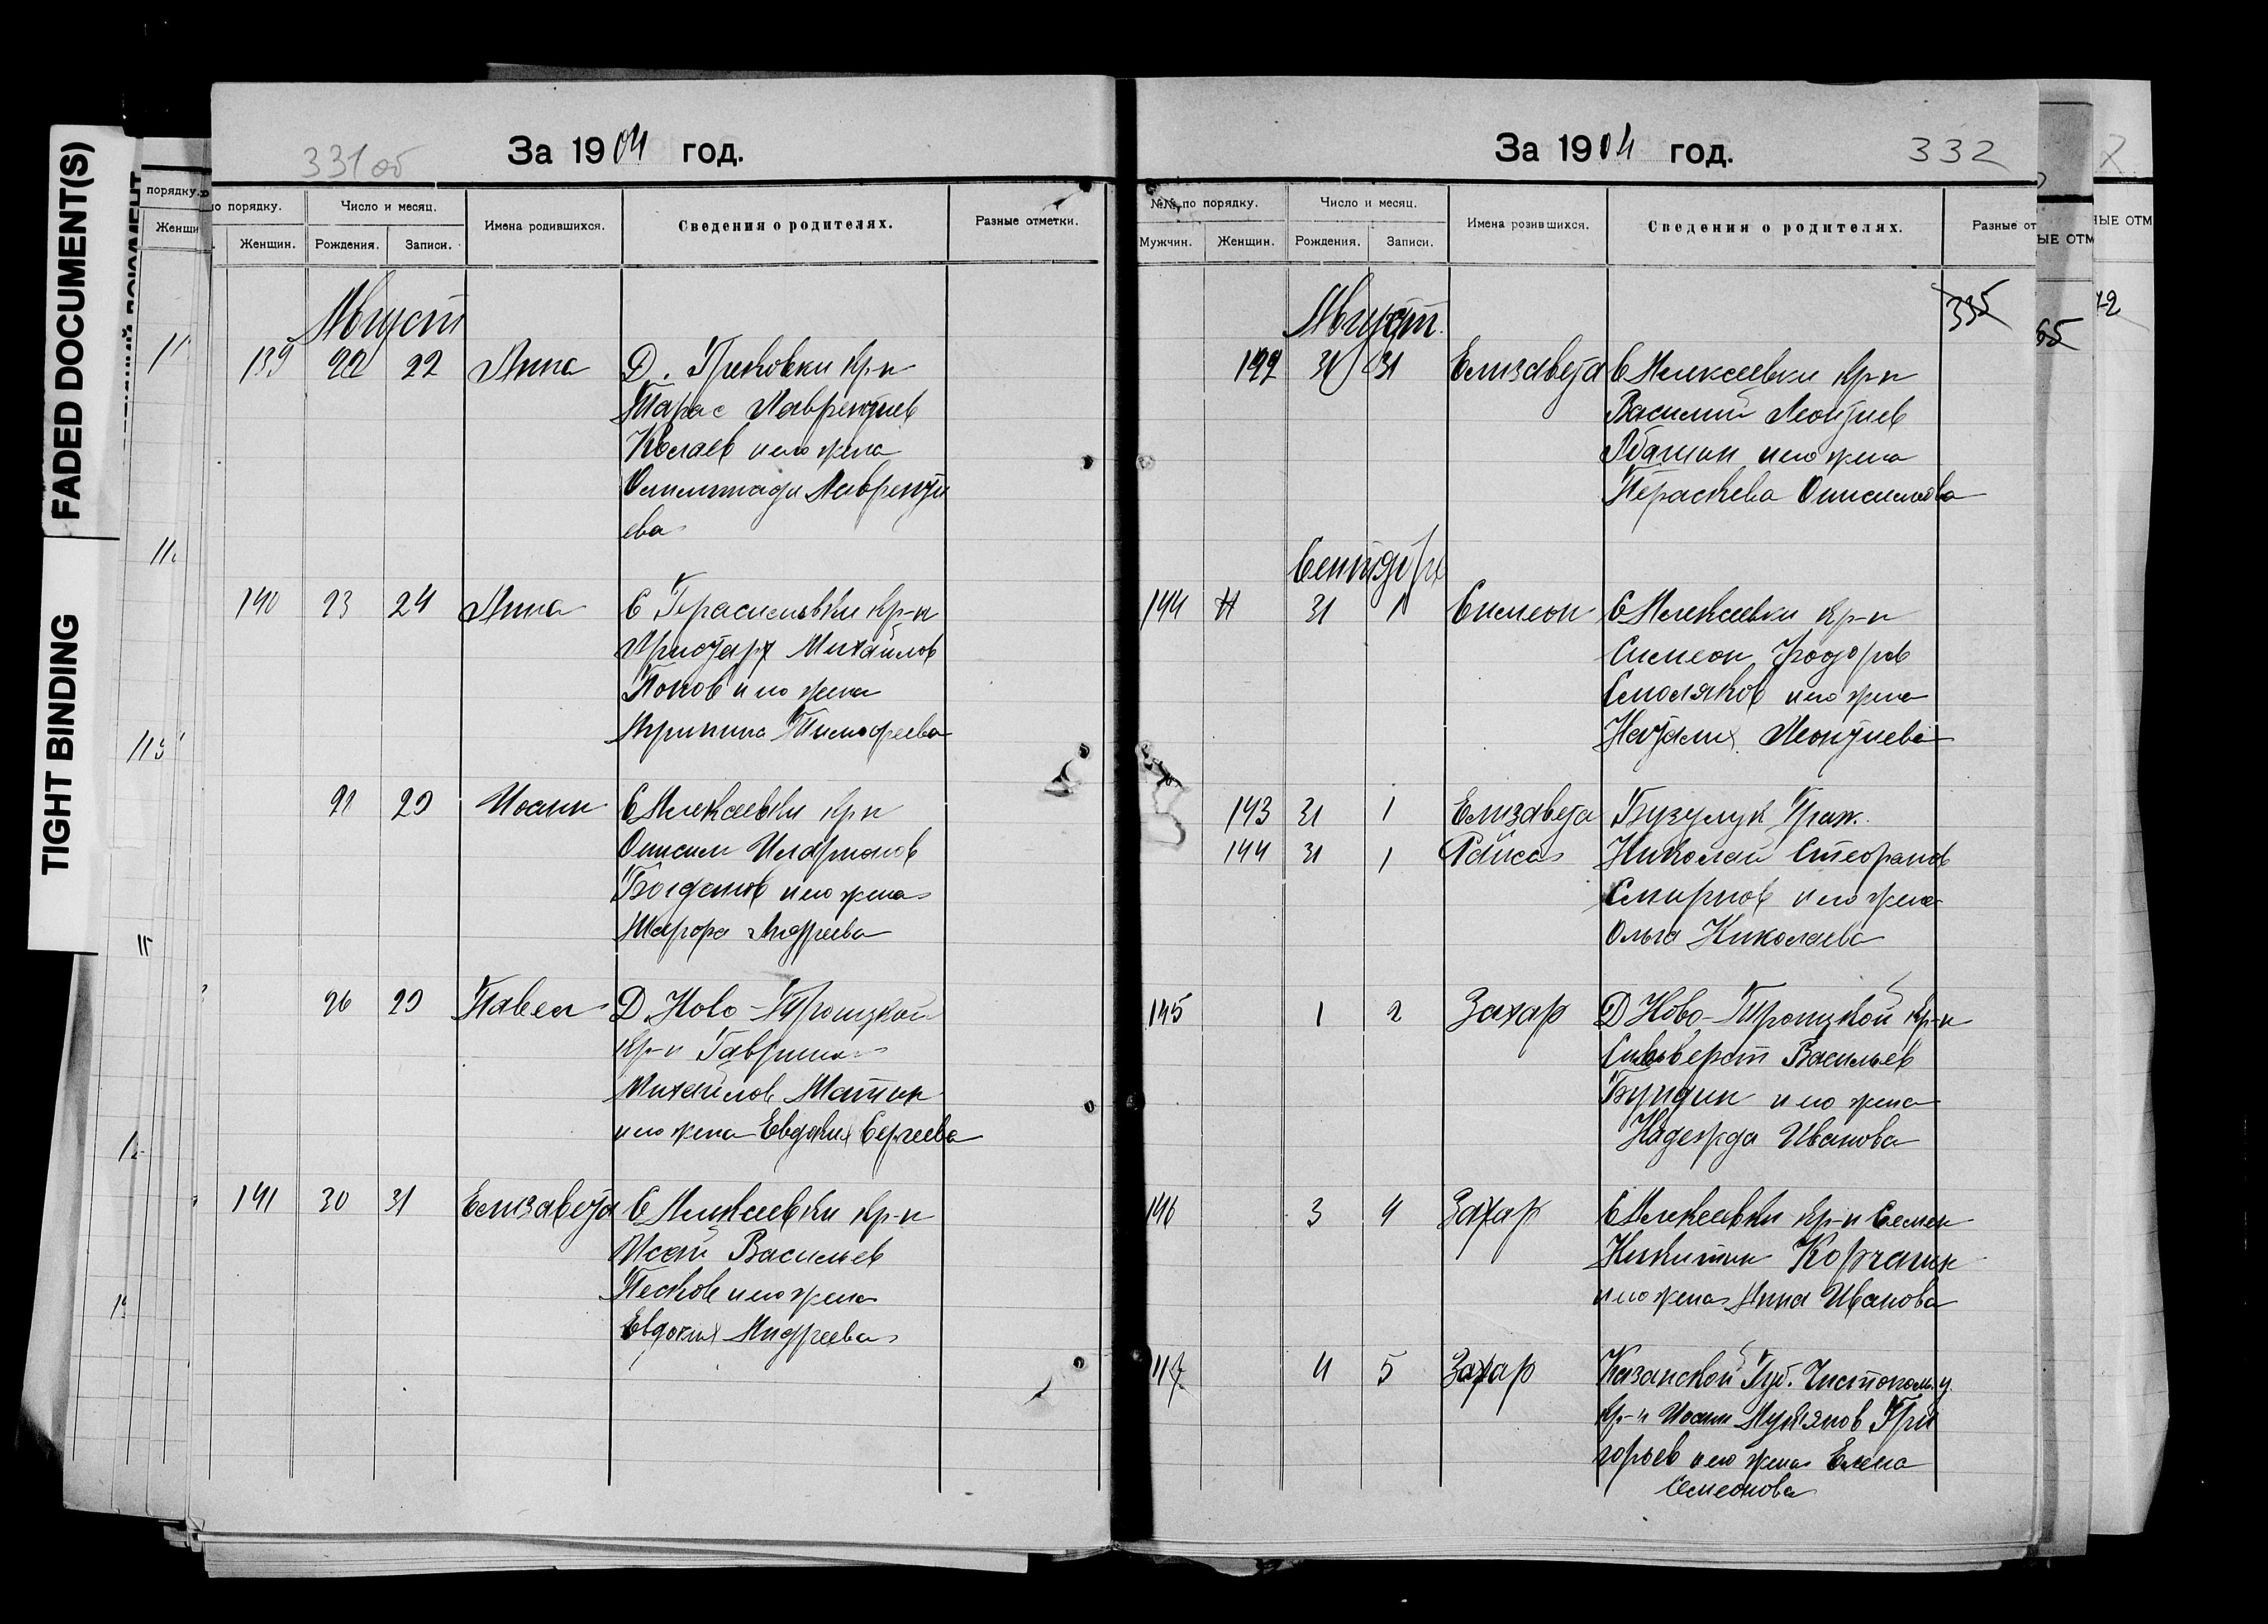 FADED DOCUMENT(S)
TIGHT BINDING
порядку.
Женщи
331 об
За 1904 год.
по порядку.
Число и месяц.
Имена родившихся.
Сведения о родителях.
Разные отметки.
Женщин.
Рождения.
Записи.
Август
139 22 22 Анна Д. Грековки кр-н
Тарас Лаврентиев
и его жена
Лавренти
ева
140 23 24 Анна С Герасимовки кр-н
Аристарх Михайлов
Попов и его жена
Тимофеева
21 29 Иоанн С Алексеевки кр-н
Онисим Иларионов
Богданов и его жена
Марфа Андреева
26 29 Павел Д. Ново-Троицкой
кр-н Гавриил
Михайлов и его жена Евдокия Сергеева
141 30 31 Елизавета С Алексеевки кр-н
Исай Васильев
Песков и его жена
Евдокия Андреева
За 1904 год.
332
№№ по порядку.
Число и месяц.
Имена розившихся.
Сведения о родителях.
Разные от
Мужчин.
Женщин.
Рождения.
Записи.
ЫЕ ОТМ
НЫЕ ОТМ
335
Август.
142 31 31 Елизавета С Алексеевки кр-н
Василий Леонтиев
Абашин и его жена
Параскева Онисимова
Сентября
144 31 1 Симеон С Алексеевки кр-н
Симеон Феодоров
Смоляков и его жена
Наталия Леонтиева
143 31 1 Елизавета Бузулук Граж.
144 31 1 Раиса Николай Стефанов
Смирнов и его жена
Ольга Николаева
145 1 2 Захар Д Ново-Троицкой кр-н
Сильверст Васильев
Бундин и его жена
Надежда Иванова
146 3 4 Захар С Алексеевки кр-н Семен
Никитин Корчагин
и его жена Анна Иванова
147 4 5 Захар Казанской Губ. Чистополь. у.
кр-н Иоанн Лукянов Гри
горьев и его жена Елена
Семеонова